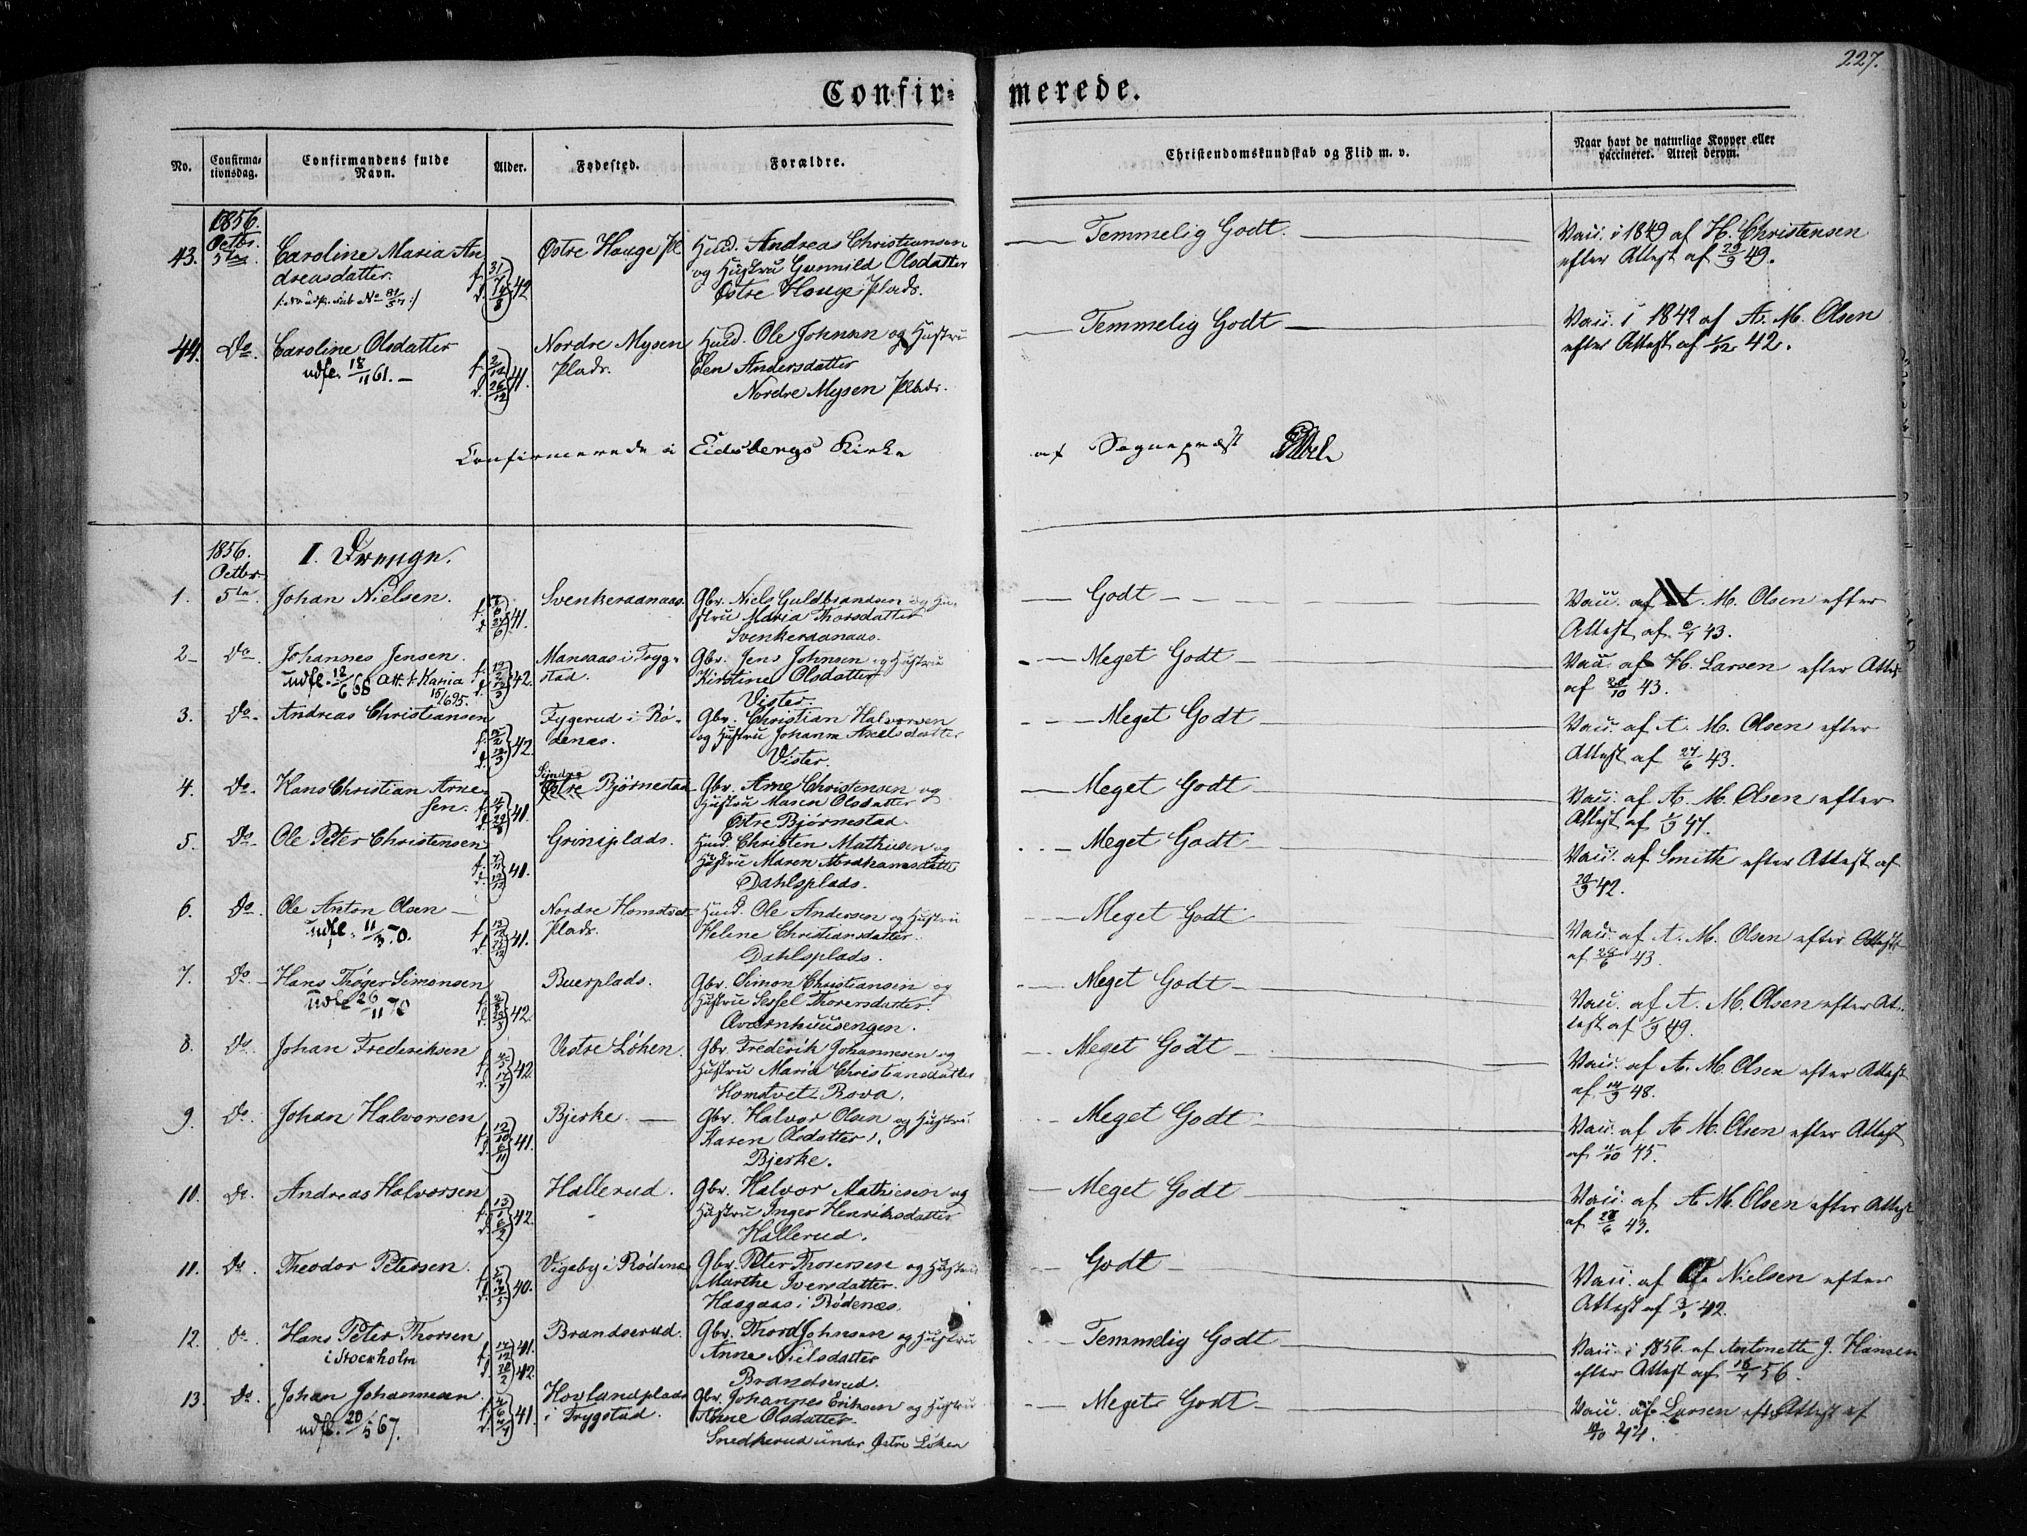 227.
Confir- merede.
No. Confirmationsdag. Confirmandens fulde Navn. Alder. Fødested. Forældre. Christendomskundskab og Flid m. v. Naar havt de naturlige Kopper eller vaccineret. Attest derom.
1856.
Octbr.
43. 5te Caroline Maria An Østre Houge Pl Huusm. Andreas Christiansen Temmelig Godt. Vacc. i 1849 af H. Christensen
dreasdatter. 42 og Hustru Gunnild Olsdatter efter Attest af 49.
Østre Houge Plads.
44. Do. Caroline Olsdatter Nordre Mysen Huusm. Ole Johnsen og Hustru Temmelig Godt Vacc. i 1842 af A. M. Olsen
udfl. 18/11 61. 41. Plads. Elen Andersdatter efter Attest af 1/12 42.
Nordre Mysen Plads.
Confirmerede i Eidsbergs Kirke af Sognepræst
1856. I. Drenge.
Octbr
1. 5te Johan Nielsen. 41. Svenkeraanaas. Gbr. Niels Guldbrandsen og Hu- Godt Vacc. af A. M. Olsen efter
stru Maria Thorsdatter Attest af 43.
Svenkeraanaas.
2. Do Johannes Jensen. 42. Mansaas i Tryg- Gbr. Jens Johnsen og Hustru Meget Godt Vacc. af H. Larsen efter Attest
udfl. 12/6 68 stad. Kirstine Olsdatter af 43.
Vister.
3. Do. Andreas Christiansen 42. Fygerud i Rø- Gbr. Christian Halvorsen Meget Godt Vacc. af A. M. Olsen efter
denæs. og Hustru Johanne Axelsdatter Attest af 27/6 43.
Vister.
4. Do. Hans Christian Arne- Søndre Østre Bjørnestad Gbr. Arne Christensen og Meget Godt Vacc. af A. M. Olsen efter
sen. 41. Hustru Maren Olsdatter Attest af 47.
Østre Bjørnestad.
5. Do. Ole Peter Christensen 41. Griniplads. Huusm. Christen Mathisen og Meget Godt Vacc. af Smith efter Attest af
Hustru Maren Abrahamsdatter 42.
Dahlsplads.
6. Do. Ole Anton Olsen 41. Nordre Homtvet Huusm. Ole Andersen og Hustru Meget Godt Vacc. af A. M. Olsen efter Attest
udfl. 11/3 70. Plads. Helene Christiansdatter. af 43.
Dahlsplads.
7. Do Hans Thøger Simensen 42. Buerplads. Gbr. Simon Christiansen og Meget Godt Vacc. af A. M. Olsen efter At-
udfl 26/11 70 Hustru Sessel Thorersdatter. test af 49.
Qværnhuusengen.
8. Do. Johan Frederiksen 42. Vestre Løken. Gbr. Frederik Johannesen og Meget Godt Vacc. af A. M. Olsen efter Attest
Hustru Maria Christiansdatter af 48.
Homtvet Rova.
9. Do. Johan Halvorsen 41. Bjerke. Gbr. Halvor Olsen og Hustru Meget Godt Vacc. af A M. Olsen efter Attest
Karen Olsdatter. af 45.
Bjerke.
10. Do. Andreas Halvorsen 42. Hallerud. Gbr. Halvor Mathiesen og Meget Godt Vacc. af A. M. Olsen efter Attest
Hustru Inger Henriksdatter af 43.
Hallerud.
11. Do. Theodor Petersen. 40. Vigeby i Rødenæs Gbr. Peter Thorersen og Hustru Godt Vacc. af Nielsen efter
Marthe Iversdatter. Attest af 42.
Haagaas i Rødenæs.
12. Do. Hans Peter Thorsen 41. Brandserud. Gbr. Thord Johnsen og Hustru Temmelig Godt Vacc. i 1856 af Antonette J. Hansen
i Stockholm 42. Anne Nielsdatter efter Attest af 56.
Brandserud.
13. Do. Johan Johannesen 41. Hovlandplads Gbr. Johannes Eriksen og Hustru Meget Godt Vacc. af Larsen eft. Attest af
udfl. 20/5 67. i Trygstad. Anne Olsdatter 44.
Snedkerud under Østre Løken